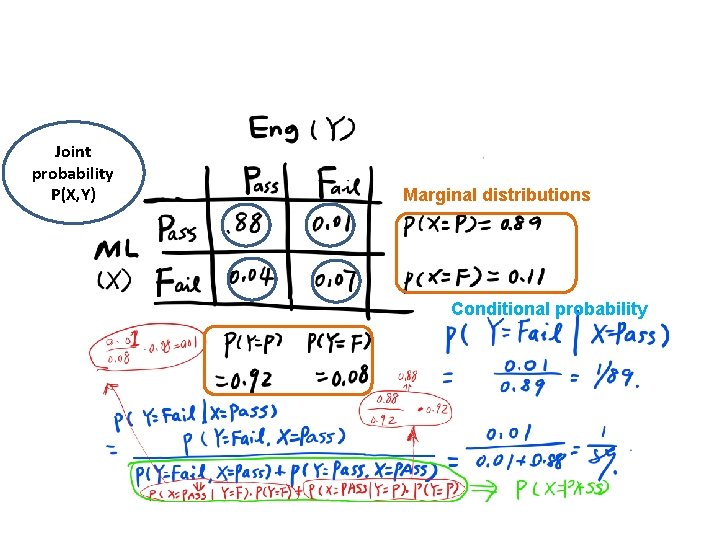 Joint
probability
P(X,Y)
Eng (Y)
Pass Fail
Marginal distributions
ML
(X)
Pass .88 0.01 P(X=P)= 0.89
Fail 0.04 0.07 P(X=F)= 0.11
Conditional probability
P(Y=P) P(Y=F)
=0.92 =0.08
P( Y=Fail | X=Pass)
= 0.01/0.89 = 1/89.
0.01/0.08 · 0.08=0.01
0.88
0.88/0.92 • 0.92
P( Y=Fail | X=Pass)
= P( Y=Fail, X=Pass) / P(Y=Fail, X=Pass) + P(Y=Pass, X=PASS) = 0.01 / 0.01+0.88 = 1/89.
P(X=PASS | Y=F)·P(Y=F) + P(X=PASS|Y=P)·P(Y=P) ⇒ P(X=PASS)